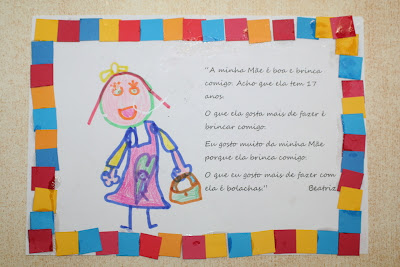 "A minha Mãe é boa e brinca
comigo. Acho que ela tem 17
anos.
O que ela gosta mais de fazer é
brincar comigo.
Eu gosto muito da minha Mãe
porque ela brinca comigo.
O que eu gosto mais de fazer com
ela é bolachas." Beatriz